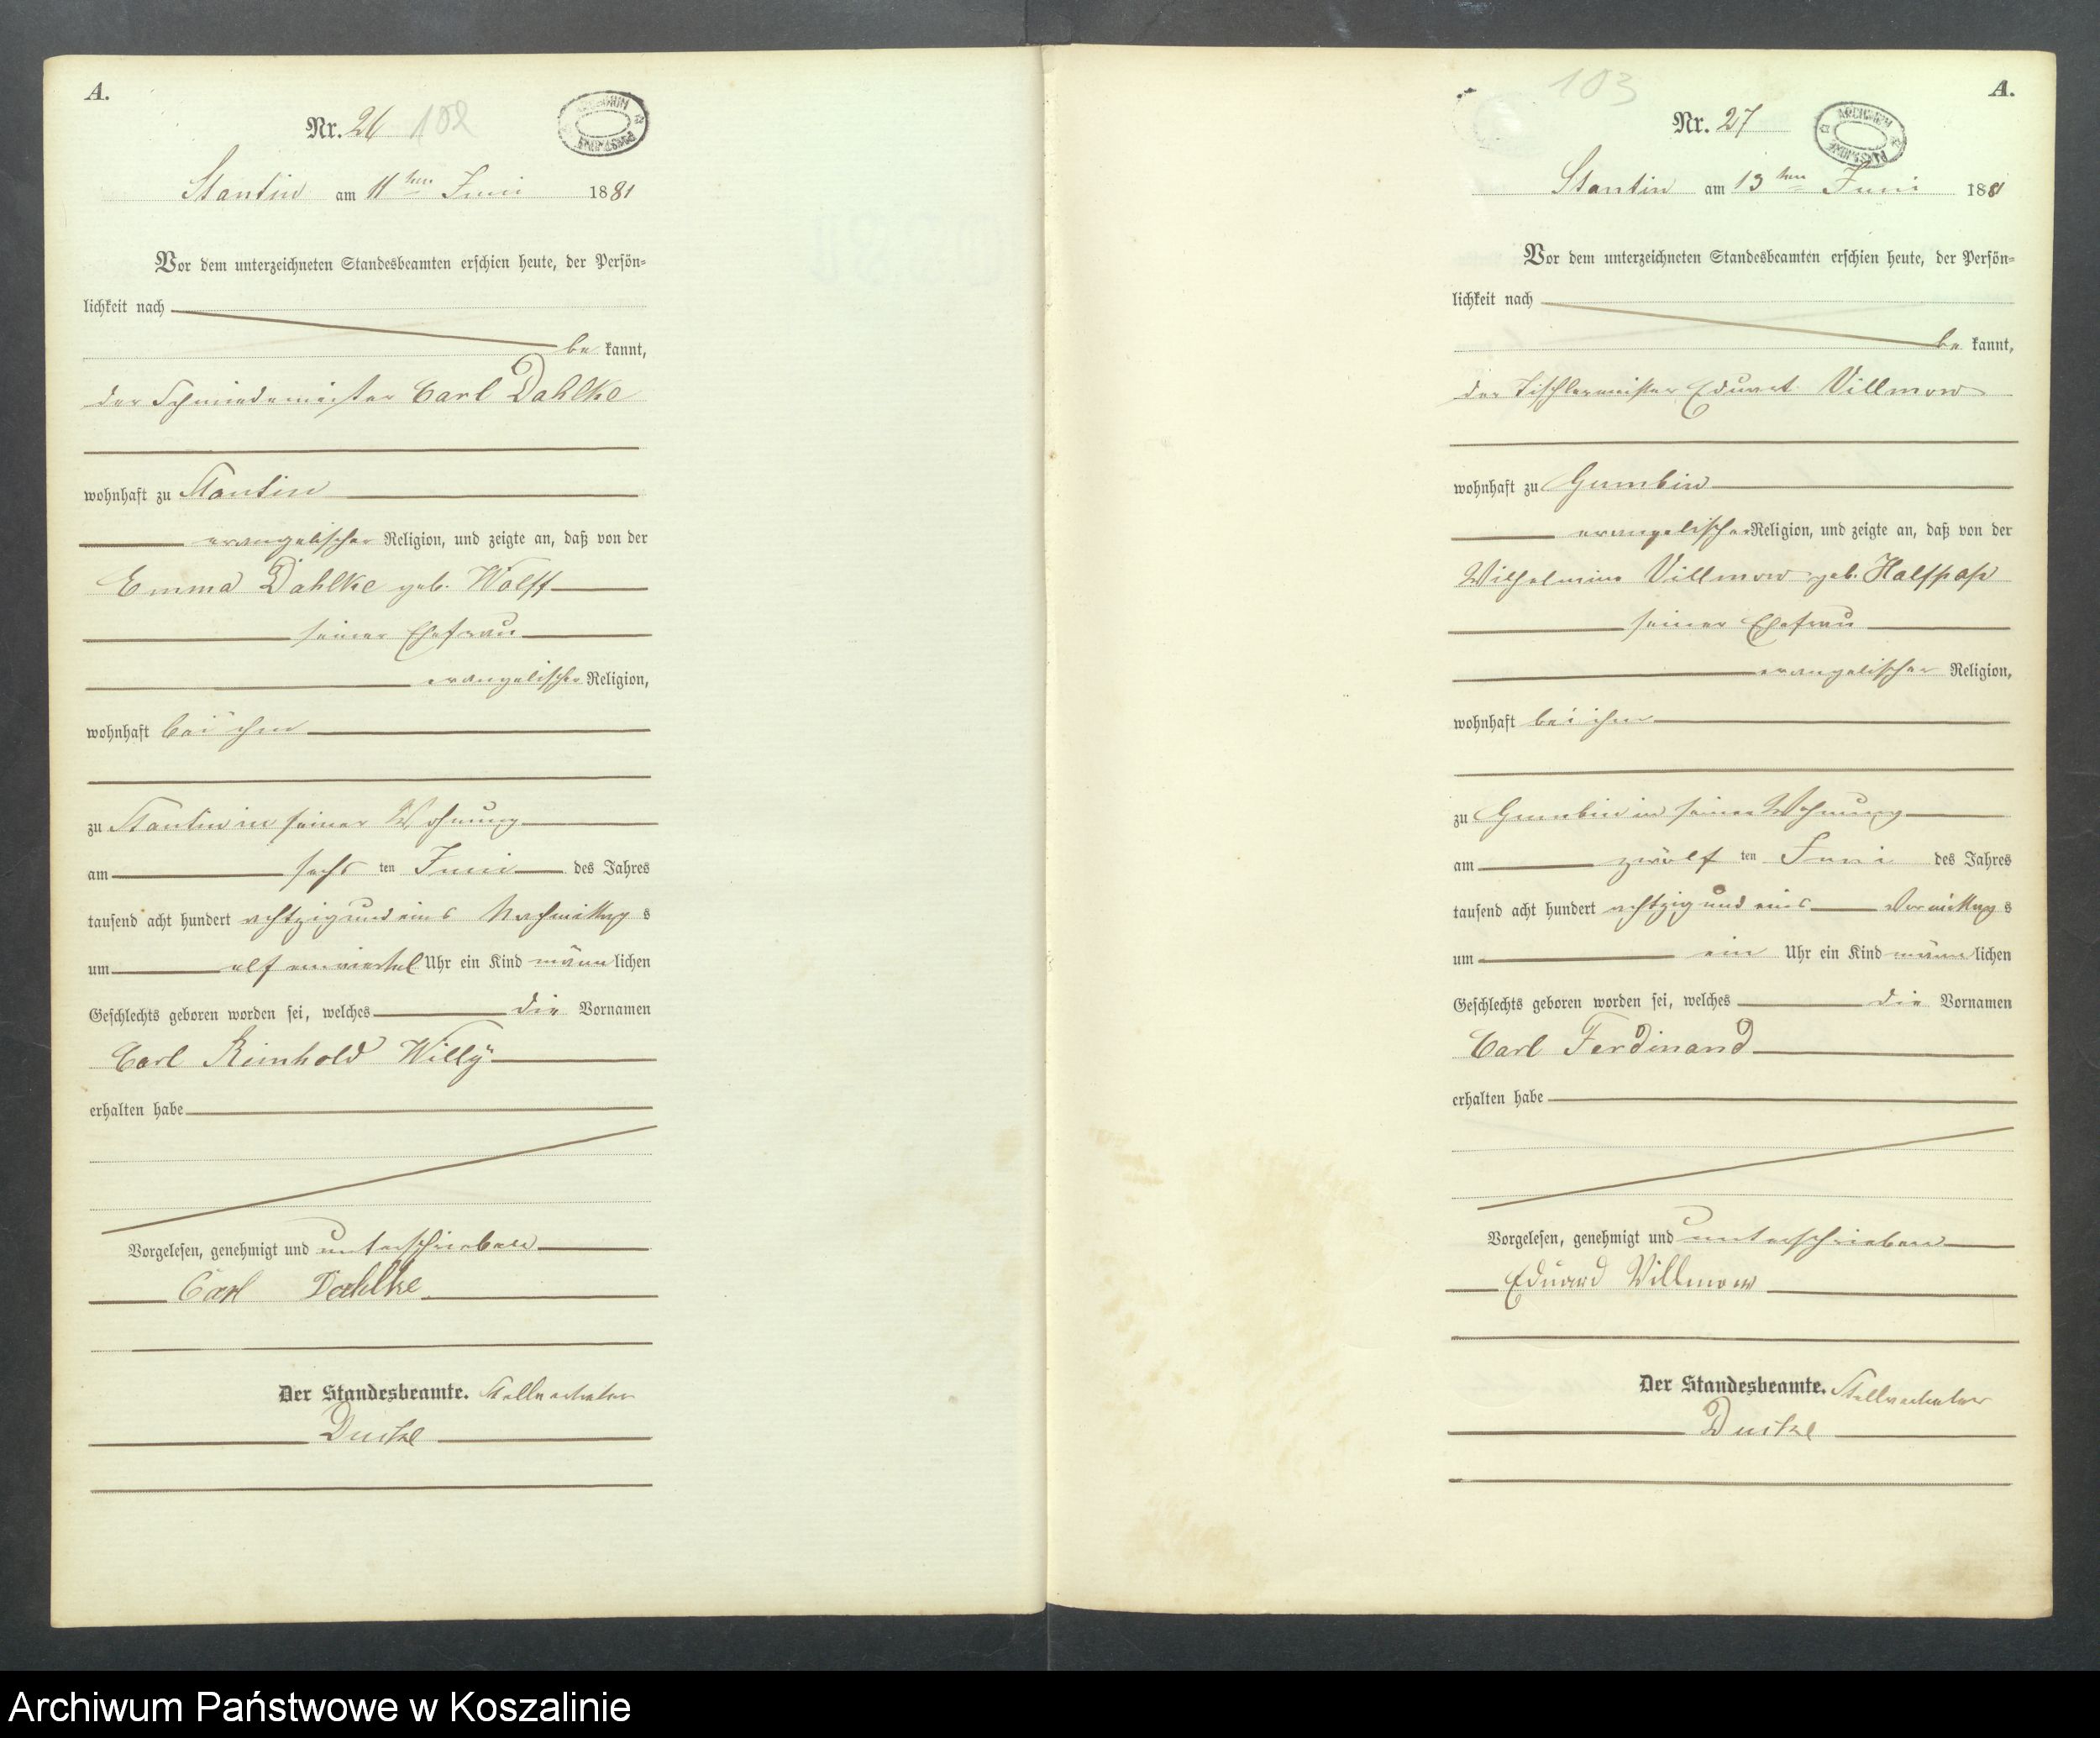 A.
Nr. 26 102
ARCHIWUM PAŃSTWOWE
Stantin am 11ten Juni 1881
Vor dem unterzeichneten Standesbeamten erschien heute, der Persön=
lichkeit nach
be kannt,
der Schmiedemeister Carl Dahlke
wohnhaft zu Stantin
evangelischer Religion, und zeigte an, daß von der
Emma Dahlke geb. Wolff
seiner Ehefrau
evangelischer Religion,
wohnhaft bei ihm
zu Stantin in seiner Wohnung
am sechs ten Juni des Jahres
tausend acht hundert achtzig und eins Nachmittag s
um elf einviertel Uhr ein Kind männ lichen
Geschlechts geboren worden sei, welches die Vornamen
Carl Reinhold Willy
erhalten habe
Vorgelesen, genehmigt und unterschrieben
Carl Dahlke
Der Standesbeamte. Stellvertreter
103
A.
Nr. 27
ARCHIWUM PAŃSTWOWE
Stantin am 13ten Juni 1881
Vor dem unterzeichneten Standesbeamten erschien heute, der Persön=
lichkeit nach
be kannt,
der Tischlermeister Eduard Villmow
wohnhaft zu Gumbin
evangelischer Religion, und zeigte an, daß von der
Wilhelmine Villmow geb. Halfpap
seiner Ehefrau
evangelischer Religion,
wohnhaft bei ihm
zu Gumbin in seiner Wohnung
am zwölf ten Juni des Jahres
tausend acht hundert achtzig und eins Vormittag s
um ein Uhr ein Kind männ lichen
Geschlechts geboren worden sei, welches die Vornamen
Carl Ferdinand
erhalten habe
Vorgelesen, genehmigt und unterschrieben
Eduard Villmow
Der Standesbeamte. Stellvertreter
Archiwum Państwowe w Koszalinie